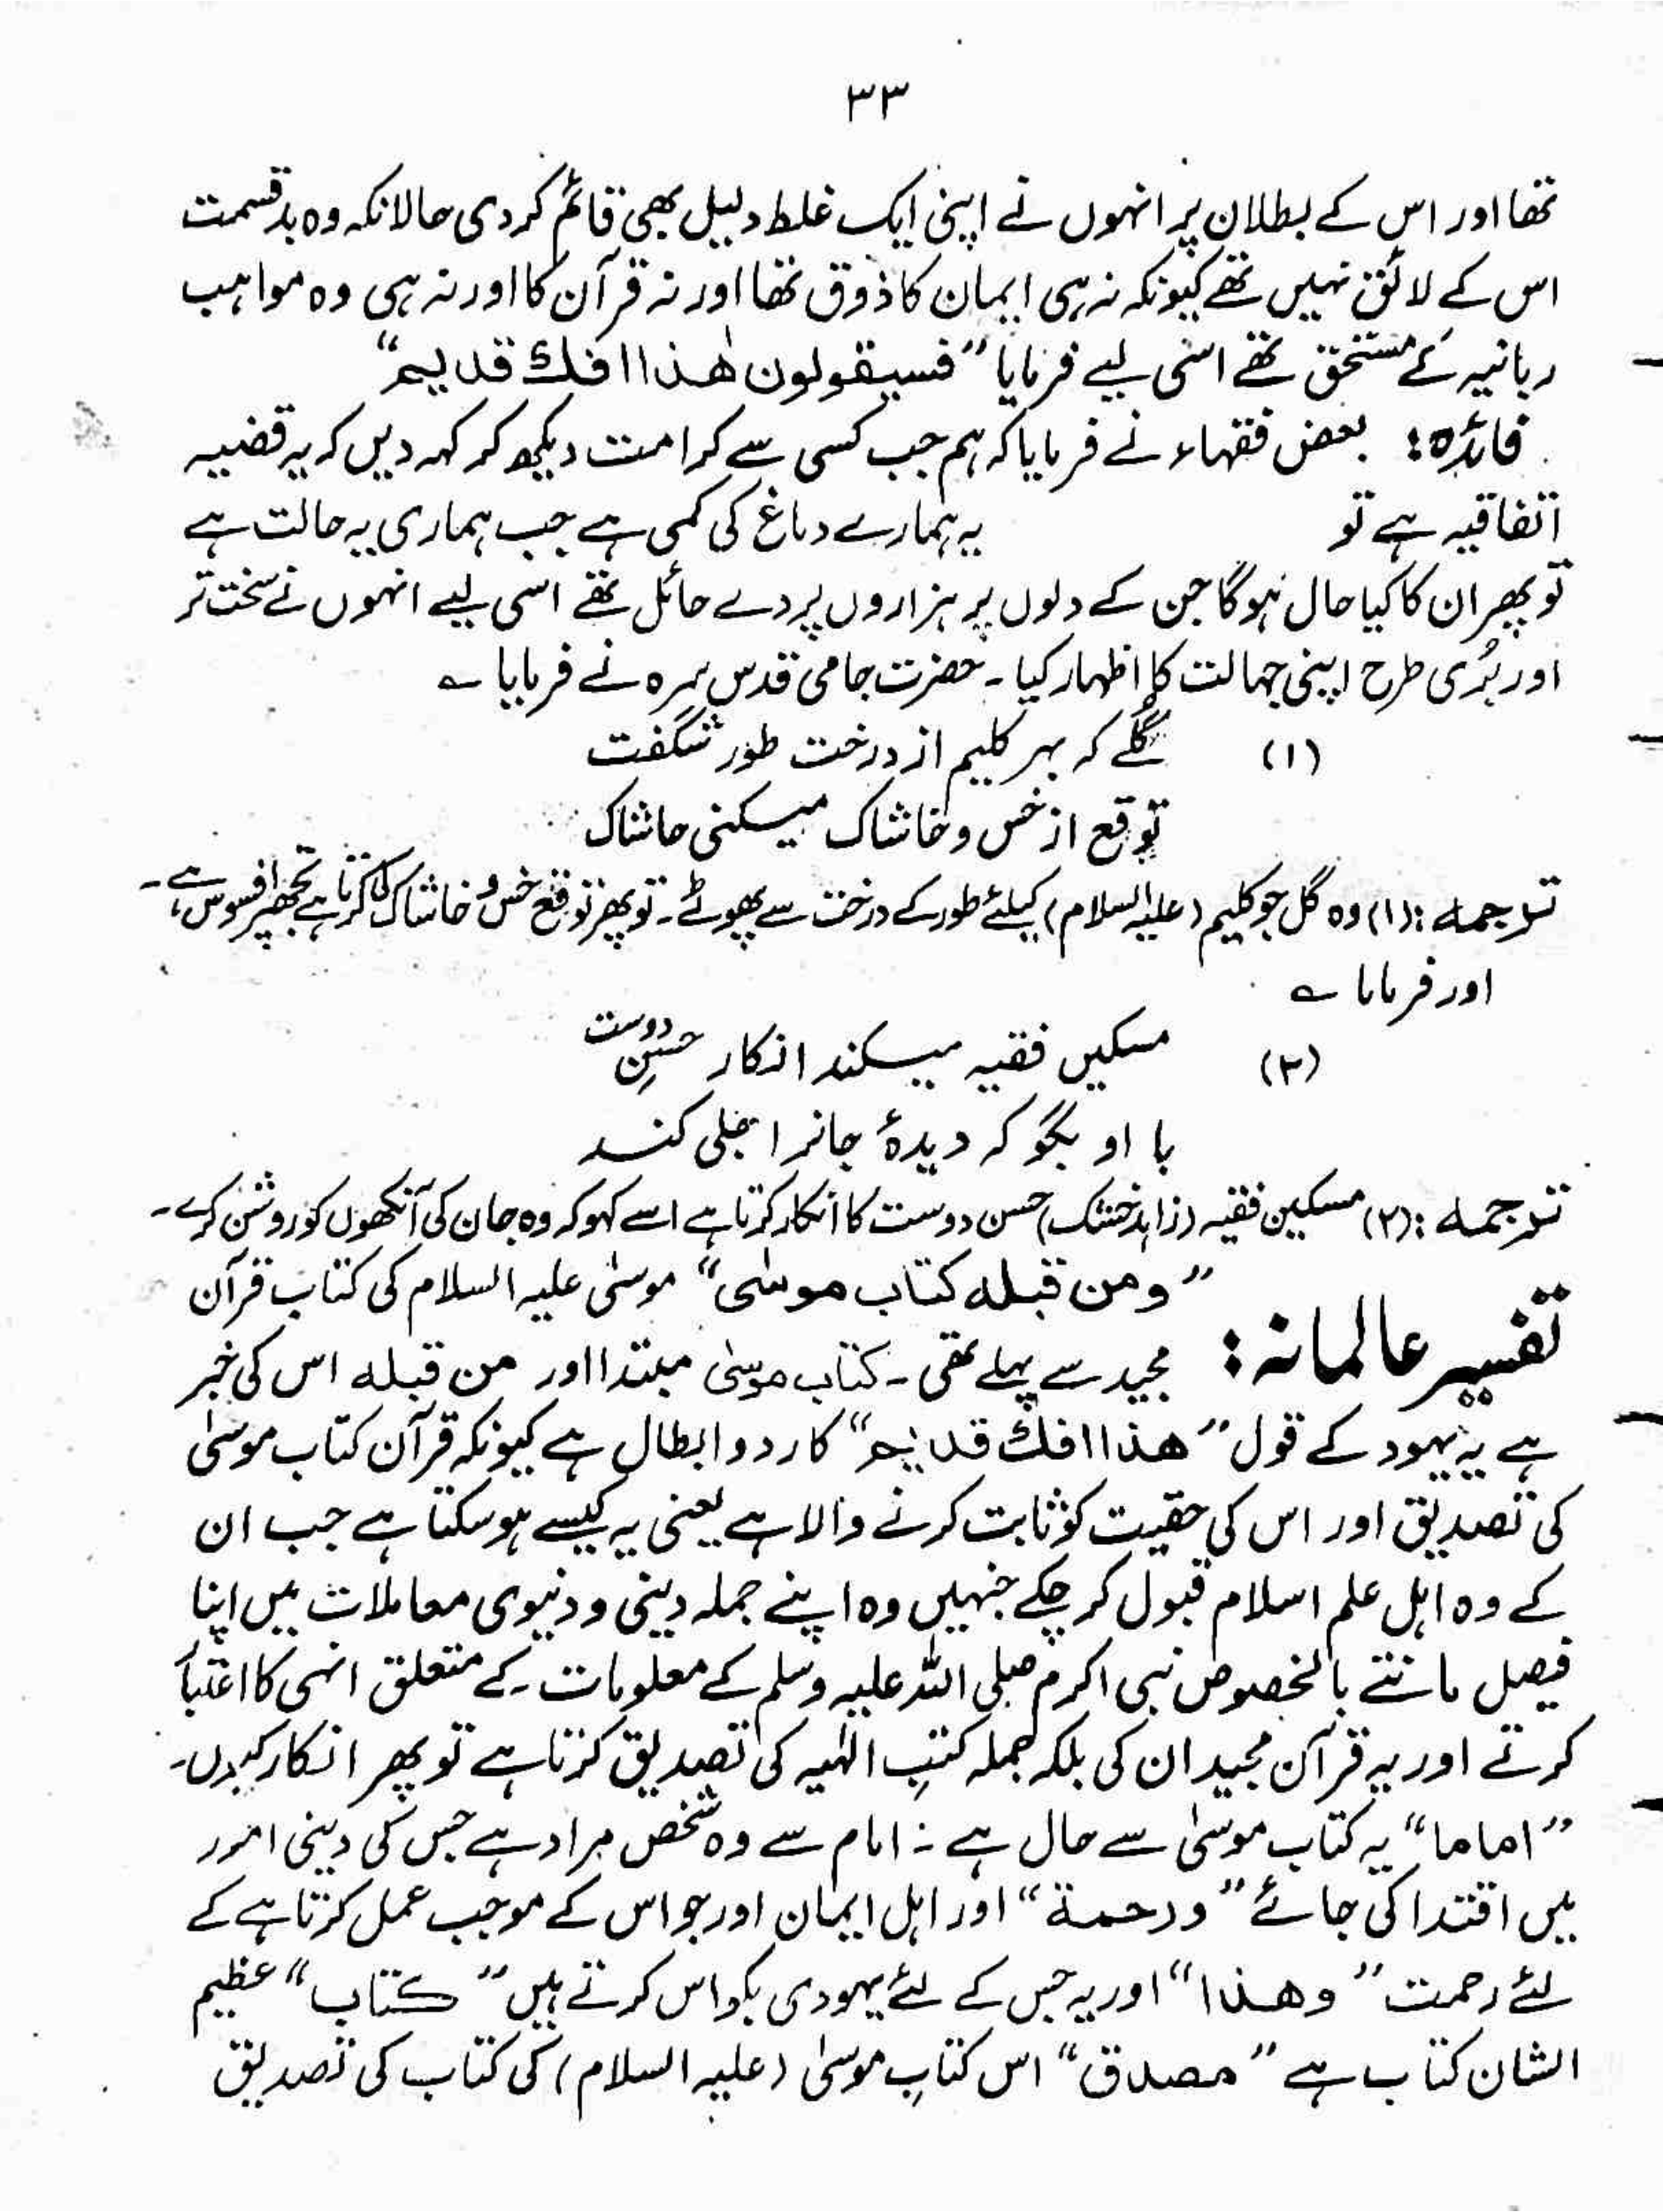 ۳۳
تھا اور اس کے بطلان پر انہوں نے اپنی ایک غلط دلیل بھی قائم کر دی حالانکہ وہ بدقسمت
اس کے لائق نہیں تھے کیونکہ نہ ہی ایمان کا ذوق تھا اور نہ قرآن کا اور نہ ہی وہ مواہب
ربانیہ کے مستحق تھے اسی لیے فرمایا ”فسیقولون ھٰذا افك قدیم“
فائدہ: بعض فقہاء نے فرمایا کہ ہم جب کسی سے کرامت دیکھ کر کہہ دیں کہ یہ قضیہ
اتفاقیہ ہے تو یہ ہمارے دماغ کی کمی ہے جب ہماری یہ حالت ہے
تو پھر ان کا کیا حال ہوگا جن کے دلوں پر ہزاروں پردے حائل تھے اسی لیے انہوں نے سخت تر
اور بُری طرح اپنی جہالت کا اظہار کیا۔ حضرت جامی قدس سرہ نے فرمایا ؎
(۱) گلے کہ بہر کلیم از درخت طور شگفت
توقع از خس و خاشاک میکنی حاشاک
ترجمہ: (۱) وہ گل جو کلیم (علیہ السلام) کیلئے طور کے درخت سے پھوٹے۔ تو پھر توقع خس و خاشاک کا کرتا ہے تجھپر افسوس ہے۔
اور فرمایا ؎
(۲) مسکیں فقیہ میکند انکار حسنِ دوست
با او بگو کہ دیدۂ جانرا جلی کند
ترجمہ: (۲) مسکین فقیہ (زاہد خشک) حسن دوست کا انکار کرتا ہے اسے کہو کہ وہ جان کی آنکھوں کو روشن کرے۔
تفسیر عالمانہ: ”ومن قبله کتاب موسٰی“ موسیٰ علیہ السلام کی کتاب قرآن
مجید سے پہلے تھی۔ کتاب موسیٰ مبتدا اور من قبله اس کی خبر
ہے یہ یہود کے قول ”ھذا افك قدیم“ کا رد و ابطال ہے کیونکہ قرآن کتاب موسیٰ
کی تصدیق اور اس کی حقیت کو ثابت کرنے والا ہے یعنی یہ کیسے ہو سکتا ہے جب ان
کے وہ اہل علم اسلام قبول کر چکے جنہیں وہ اپنے جملہ دینی و دنیوی معاملات میں اپنا
فیصل مانتے بالخصوص نبی اکرم صلی اللہ علیہ وسلم کے معلومات کے متعلق انہی کا اعتبار
کرتے اور یہ قرآن مجید ان کی بلکہ جملہ کتبِ الٰہیہ کی تصدیق کرتا ہے تو پھر انکار کیوں۔
”اماما“ یہ کتاب موسیٰ سے حال ہے۔ امام سے وہ شخص مراد ہے جس کی دینی امور
میں اقتدا کی جائے ”ورحمة“ اور اہل ایمان اور جو اس کے موجب عمل کرتا ہے کے
لئے رحمت ”وھذا“ اور یہ جس کے لئے یہودی بکواس کرتے ہیں ”کتاب“ عظیم
الشان کتاب ہے ”مصدق“ اس کتابِ موسیٰ (علیہ السلام) کی کتاب کی تصدیق